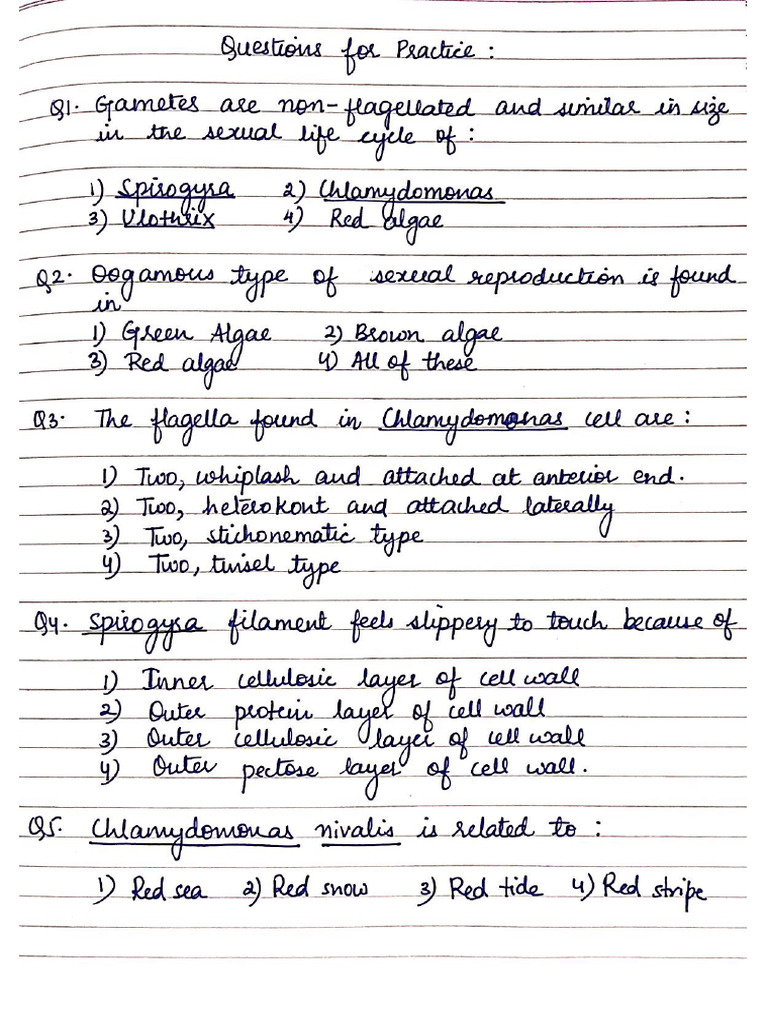 Questions for Practice :
Q1. Gametes are non-flagellated and similar in size
in the sexual life cycle of :
1) Spirogyra 2) Chlamydomonas
3) Ulothrix 4) Red algae
Q2. Oogamous type of sexual reproduction is found
in
1) Green Algae 2) Brown algae
3) Red algae 4) All of these
Q3. The flagella found in Chlamydomonas cell are :
1) Two, whiplash and attached at anterior end.
2) Two, heterokont and attached laterally
3) Two, stichonematic type
4) Two, tinsel type
Q4. Spirogyra filament feels slippery to touch because of
1) Inner cellulosic layer of cell wall
2) Outer protein layer of cell wall
3) Outer cellulosic layer of cell wall
4) Outer pectose layer of cell wall.
Q5. Chlamydomonas nivalis is related to :
1) Red sea 2) Red snow 3) Red tide 4) Red stripe